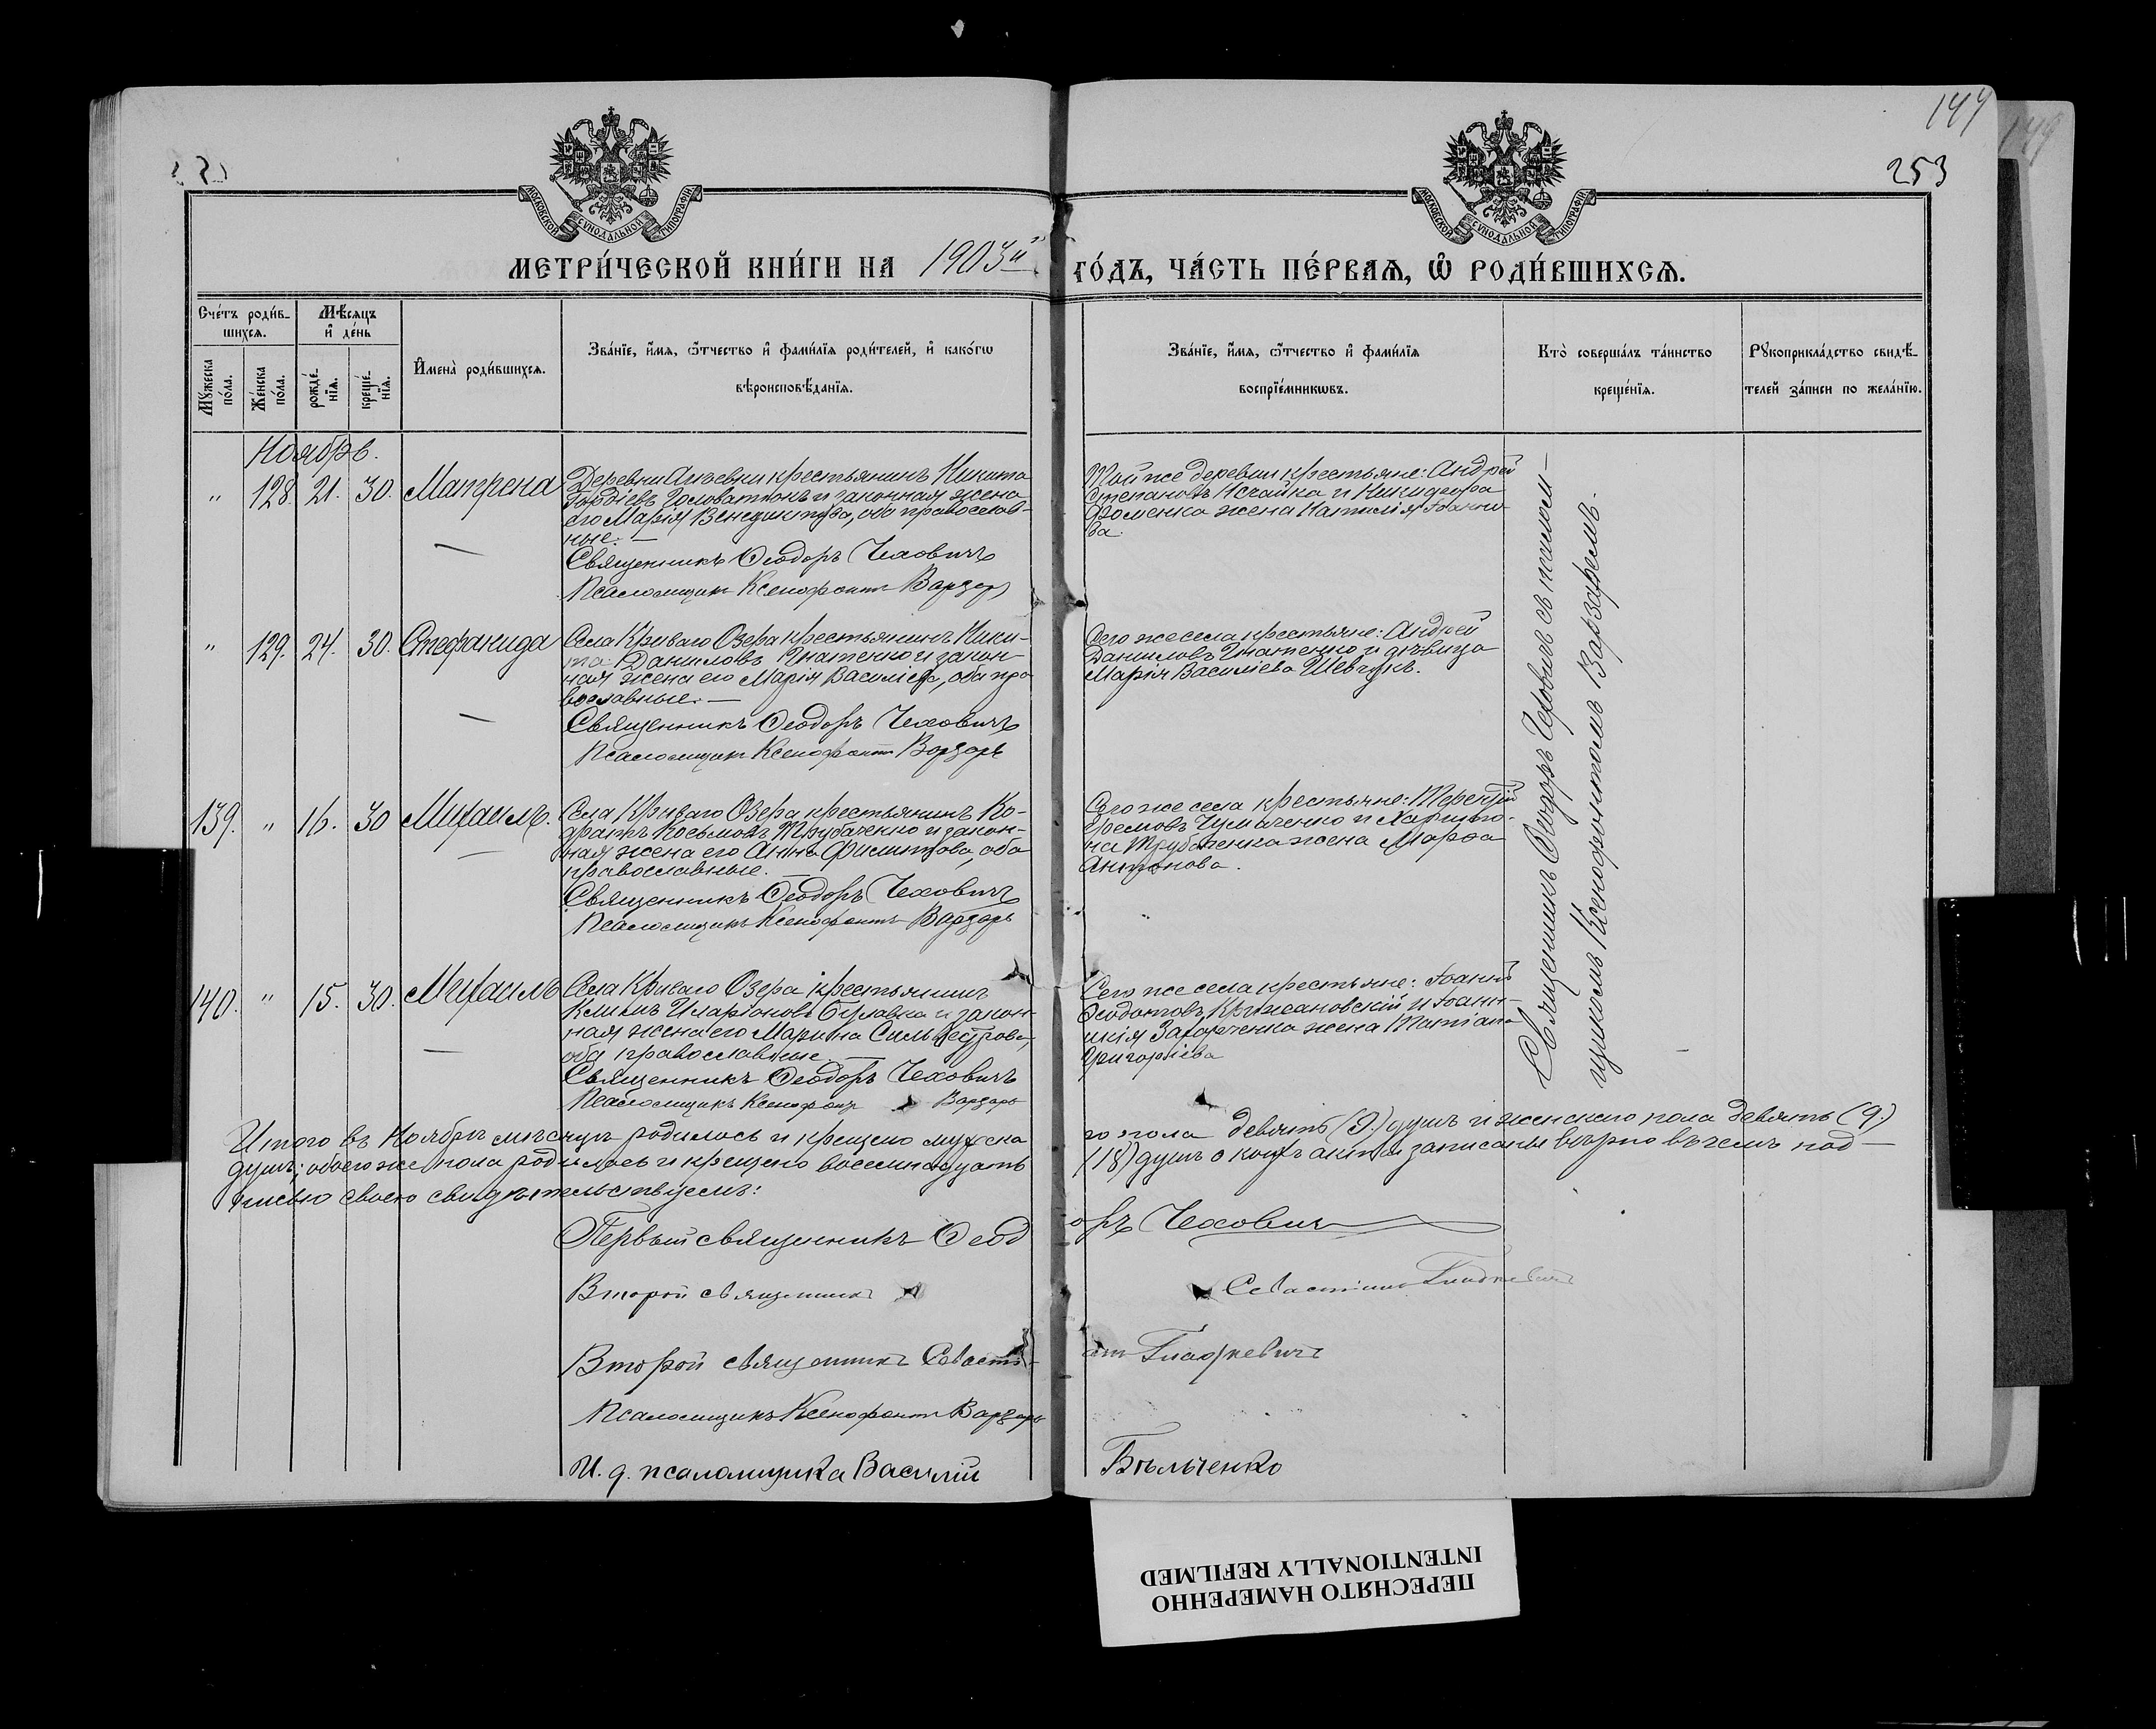 144
149
253
МОСКОВСКОЙ СУНОДАЛЬНОЙ ТИПОГРАФІИ
МОСКОВСКОЙ СУНОДАЛЬНОЙ ТИПОГРАФІИ
МЕТРИ́ЧЕСКОЙ КНИ́ГИ НА 1903й
ГО́ДЪ, ЧА́СТЬ ПЕ́РВАѦ, Ѽ РОДИ́ВШИХСѦ.
Сче́тъ роди́в-
шихсѧ.
Мѣ́сѧцъ
и҆ де́нь
Мꙋ́жеска
по́ла.
Же́нска
по́ла.
рожде́-
нїѧ.
креще́-
нїѧ.
И҆мена̀ роди́вшихсѧ.
Зва́нїе, и҆́мѧ, ѻ҆́тчество и҆ фами́лїѧ роди́телей, и҆ како́гѡ
вѣроисповѣ́данїѧ.
Зва́нїе, и҆́мѧ, ѻ҆́тчество и҆ фами́лїѧ
воспрїе́мникѡвъ.
Кто̀ соверша́лъ та́инство
креще́нїѧ.
Рꙋкоприкла́дство свидѣ́-
телей за́писи по жела́нїю.
Ноябрь.
" 128. 21. 30. Матрена
Деревни крестьянинъ Никита
Гордіевъ Головатюкъ и законная жена
его Марія Венедиктова, оба православ-
ные. —
Священникъ Ѳеодоръ Чеховичъ
Псаломщикъ Ксенофонтъ Варзарь
Той же деревни крестьяне: Андрей
Степановъ Исчайка и Никифора
Фоменка жена Наталія Іоанно-
ва.
" 129. 24. 30. Стефанида
Села Криваго Озера крестьянинъ Ники-
та Даниловъ Игнатенко и закон-
ная жена его Марія Васильева, оба пра-
вославные. —
Священникъ Ѳеодоръ Чеховичъ
Псаломщикъ Ксенофонтъ Варзарь
Сего же села крестьяне: Андрей
Даниловъ Игнатенко и дѣвица
Марія Василіева Шевчукъ.
139. " 16. 30 Михаилъ.
Села Криваго Озера крестьянинъ Ко-
дратъ Косьмовъ Трубаченко и закон-
ная жена его Анна Филиппова, оба
православные. —
Священникъ Ѳеодоръ Чеховичъ
Псаломщикъ Ксенофонтъ Варзарь
Сего же села крестьяне: Терентій
Ефремовъ Чумаченко и Харито-
на Трубаченка жена Марѳа
Антонова.
140. " 15. 30. Михаилъ
Села Криваго Озера крестьянинъ
Климъ Иларіоновъ Булавка и закон-
ная жена его Марина Сильвестрова,
оба православные. —
Священникъ Ѳеодоръ Чеховичъ
Псаломщикъ Ксенофонтъ Варзарь
Сего же села крестьяне: Іоаннъ
Ѳеодотовъ Крыжановскій и Іоанн-
икія Захарченка жена Татіана
Григоріева
Священникъ Ѳеодоръ Чеховичъ съ псалом-
щикомъ Ксенофонтомъ Варзаремъ.
Итого въ Ноябрѣ мѣсяцѣ родилось и крещено мужска
го пола девять (9.) душъ и женскаго пола девять (9.)
душъ; обоего же пола родилось и крещено восемнадцать
(18) душъ о коихъ акты записаны вѣрно въ чемъ под-
писью своею свидѣтельствуемъ:
Первый священникъ Ѳеод
оръ Чеховичъ
Второй священникъ
Севастіанъ Гладкевичъ
Второй священникъ Севасті-
анъ Гладкевичъ
Псаломщикъ Ксенофонтъ Варзарь
И. д. псаломщика Василій
Бѣльченко
ПЕРЕСНЯТО НАМЕРЕННО
INTENTIONALLY REFILMED